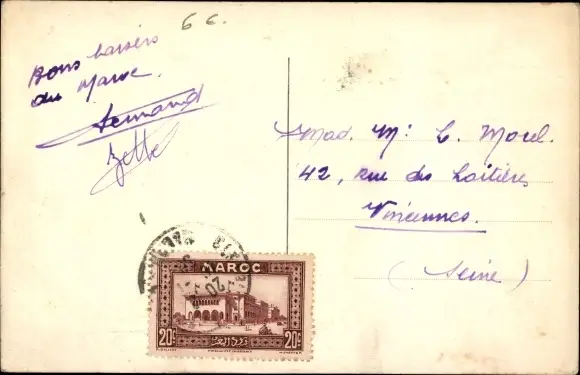 6 c.
Bons baisers
du Maroc.
Fernand
Zette
Mad. M. L. Morel.
42, rue des Laitières
Vincennes.
(Seine)
MAROC
20c 20c